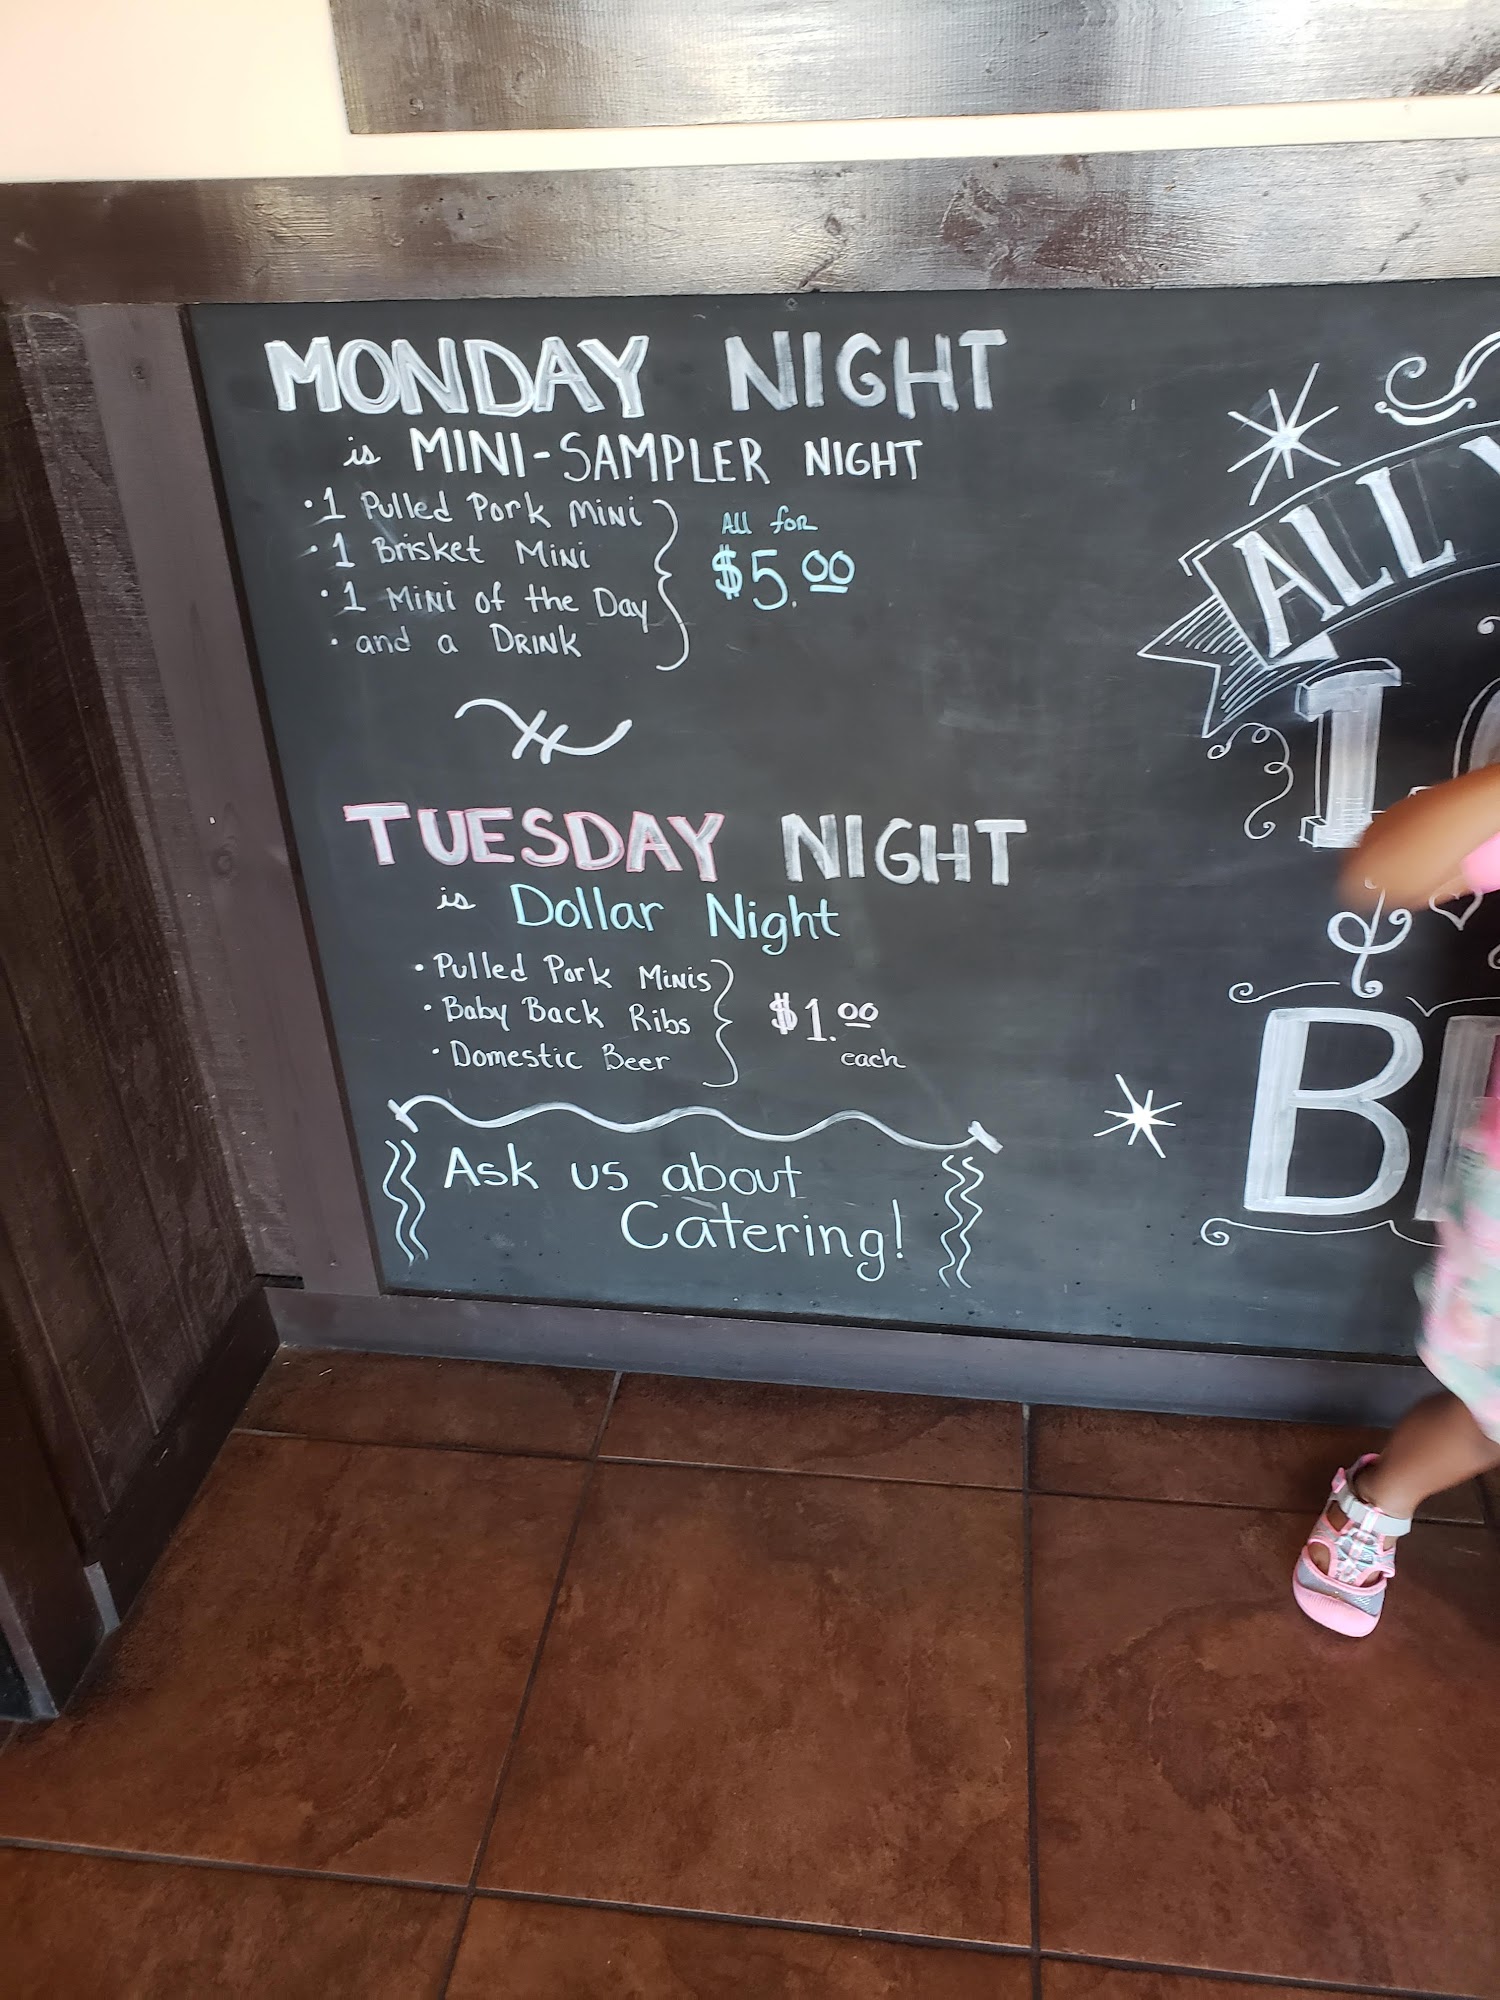 MONDAY NIGHT
is MINI-SAMPLER NIGHT
• 1 Pulled Pork Mini
• 1 Brisket Mini
• 1 Mini of the Day
• and a DRINK
All for
$5.00
TUESDAY NIGHT
is Dollar Night
• Pulled Pork Minis
• Baby Back Ribs
• Domestic Beer
$1.00
each
Ask us about
Catering!
ALL